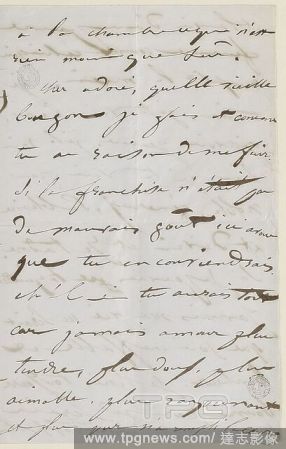 à la chambre ce qui n'est
rien moins que sûr.
Cher adoré, quelle vieille
je fais et comme
tu as raison de me fuir.
Si la franchise n'était pas
de mauvais goût ici avoue
que tu en conviendrais
eh! là ! tu aurais tort
car jamais amour plus
tendre, plus doux, plus
aimable, plus
et plus
TPG
www.tpgnews.com / 達志影像